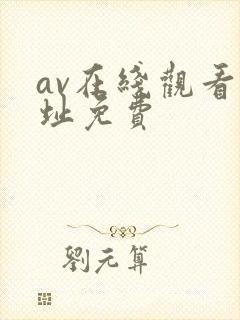 av在綫觀看
址免費
劉元算